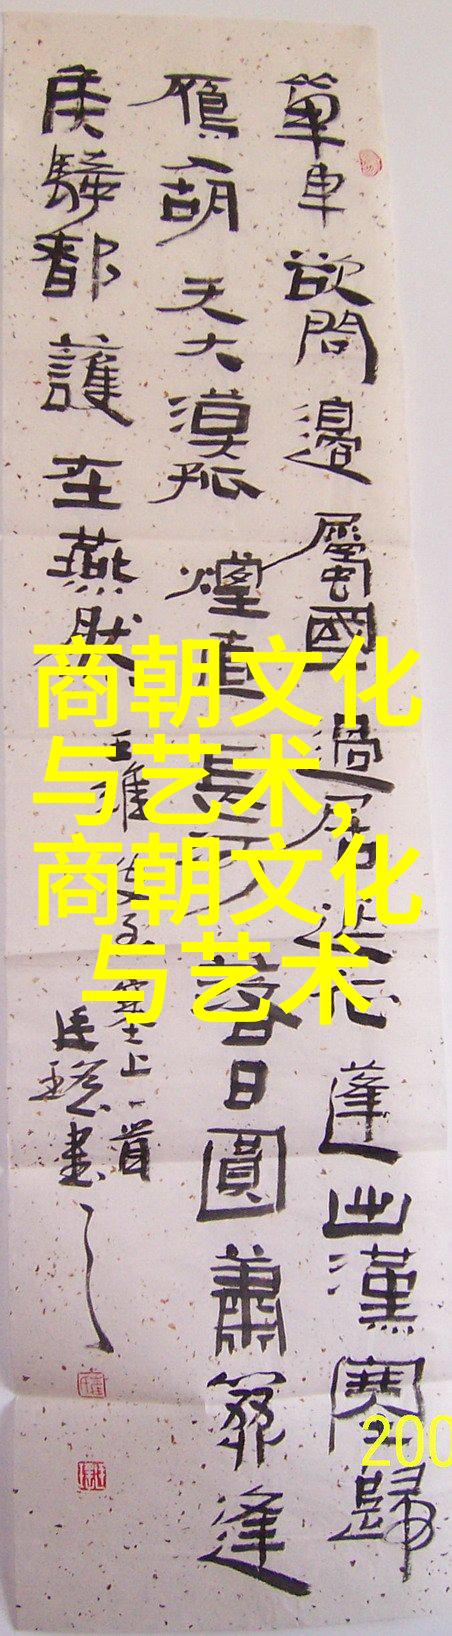 單車欲問邊屬國過居延征蓬出漢塞歸
雁入胡天大漠孤煙直長河落日圓蕭關逢
侯騎都護在燕然
王維使至塞上一首
書
商朝文化
与艺术,
商朝文化
与艺术
200